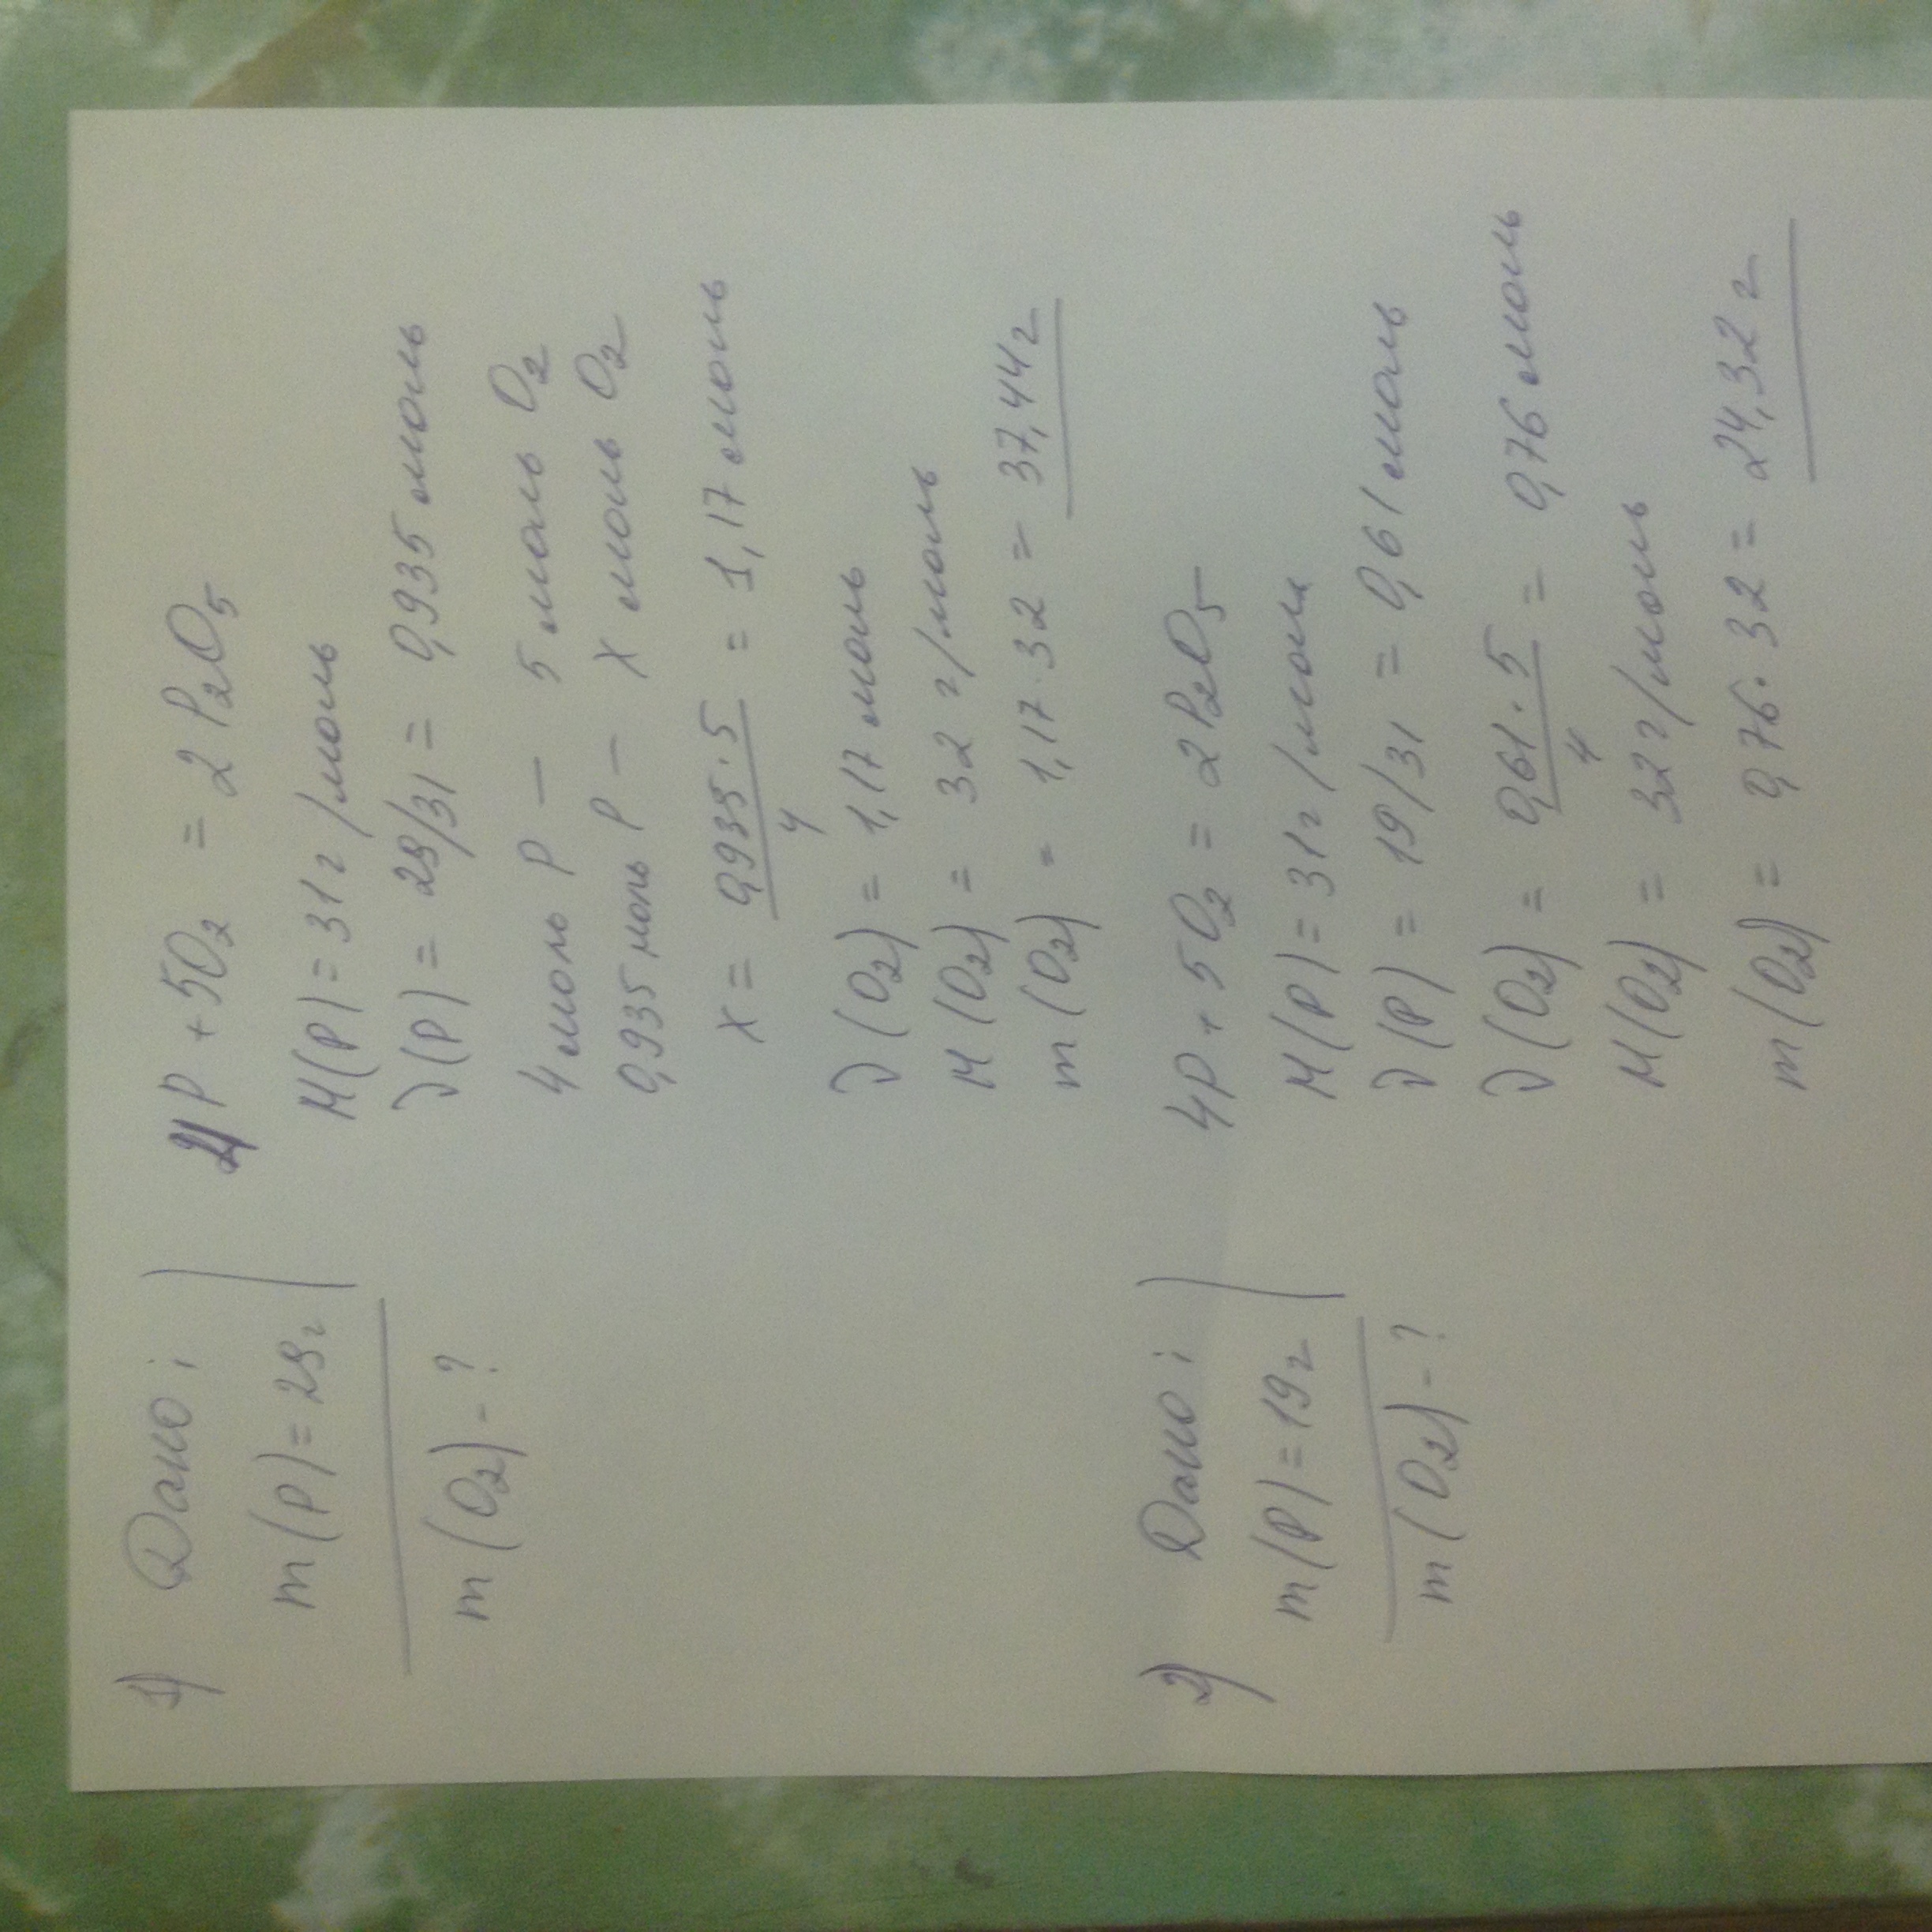 1) Дано:
m(P) = 29г
m(O₂) - ?
4P + 5O₂ = 2P₂O₅
M(P) = 31г/моль
ν(P) = 29/31 = 0,935 моль
4 моль P — 5 моль O₂
0,935 моль P — X моль O₂
X = 0,935·5/4 = 1,17 моль
ν(O₂) = 1,17 моль
M(O₂) = 32 г/моль
m(O₂) = 1,17·32 = 37,44г
2) Дано:
m(P) = 19г
m(O₂) - ?
4P + 5O₂ = 2P₂O₅
M(P) = 31г/моль
ν(P) = 19/31 = 0,61 моль
ν(O₂) = 0,61·5/4 = 0,76 моль
M(O₂) = 32г/моль
m(O₂) = 0,76·32 = 24,32 г